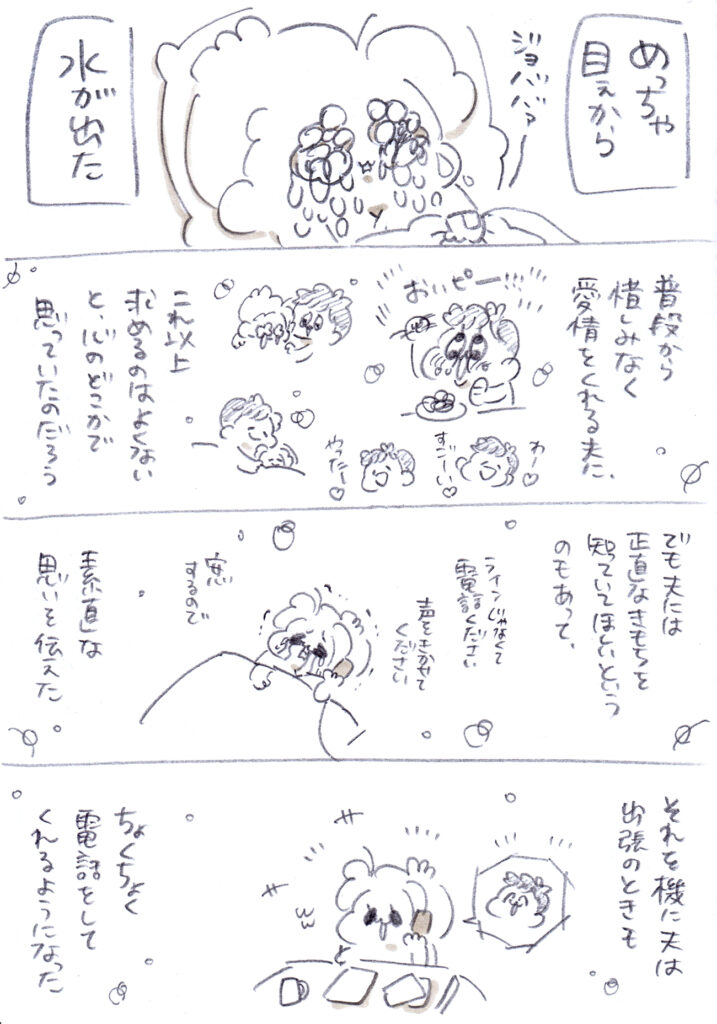 めっちゃ
目ぇから
ジョババァー
水が出た
普段から
惜しみなく
愛情をくれる夫に、
おいピー!!!
わー♡
すごーい♡
やったー♡
これ以上
求めるのはよくない
と、心のどこかで
思っていたのだろう
でも夫には
正直なきもちを
知っていてほしいという
のもあって、
ラインじゃなくて
電話ください
声をきかせて
ください
窓
するので
素直な
思いを伝えた
それを機に夫は
出張のときも
ちょくちょく
電話をして
くれるようになった